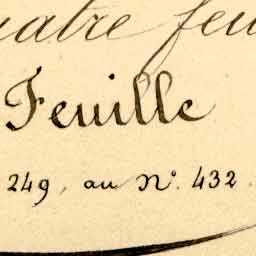 uatre feu
Feuille
249, au N°. 432.